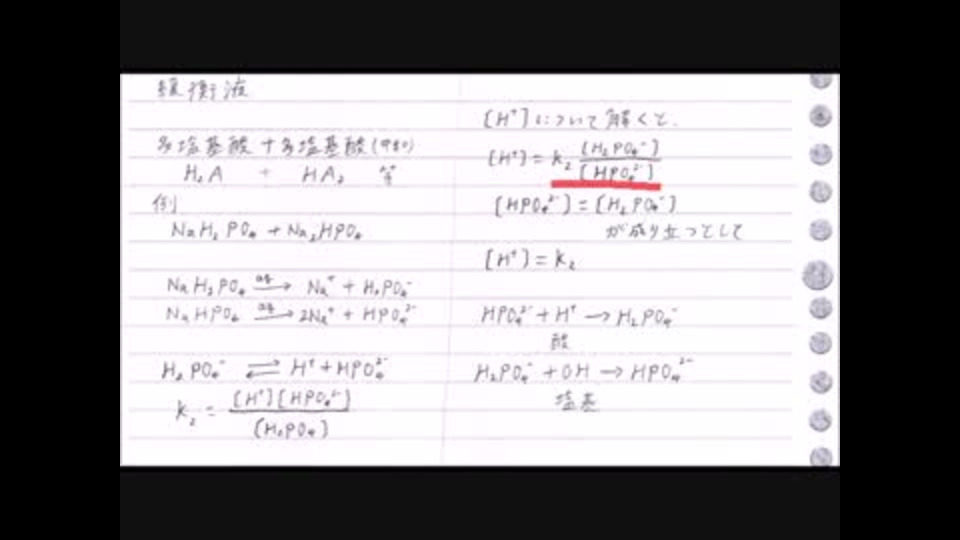 緩衝液
多塩基酸+多塩基酸(中和)
H₂A + HA₂ 等
例
NaH₂PO₄+Na₂HPO₄
NaH₂PO₄ aq→ Na⁺ + H₂PO₄⁻
NaHPO₄ aq→ 2Na⁺ + HPO₄²⁻
H₂PO₄⁻ ⇄ H⁺+HPO₄²⁻
K₂ = [H⁺][HPO₄²⁻]
[H₂PO₄]
[H⁺]について解くと、
[H⁺]=K₂ [H₂PO₄⁻]
[HPO₄²⁻]
[HPO₄²⁻]=[H₂PO₄⁻]
が成り立つとして
[H⁺]=K₂
HPO₄²⁻+H⁺→H₂PO₄⁻
酸
H₂PO₄⁻+OH→HPO₄²⁻
塩基